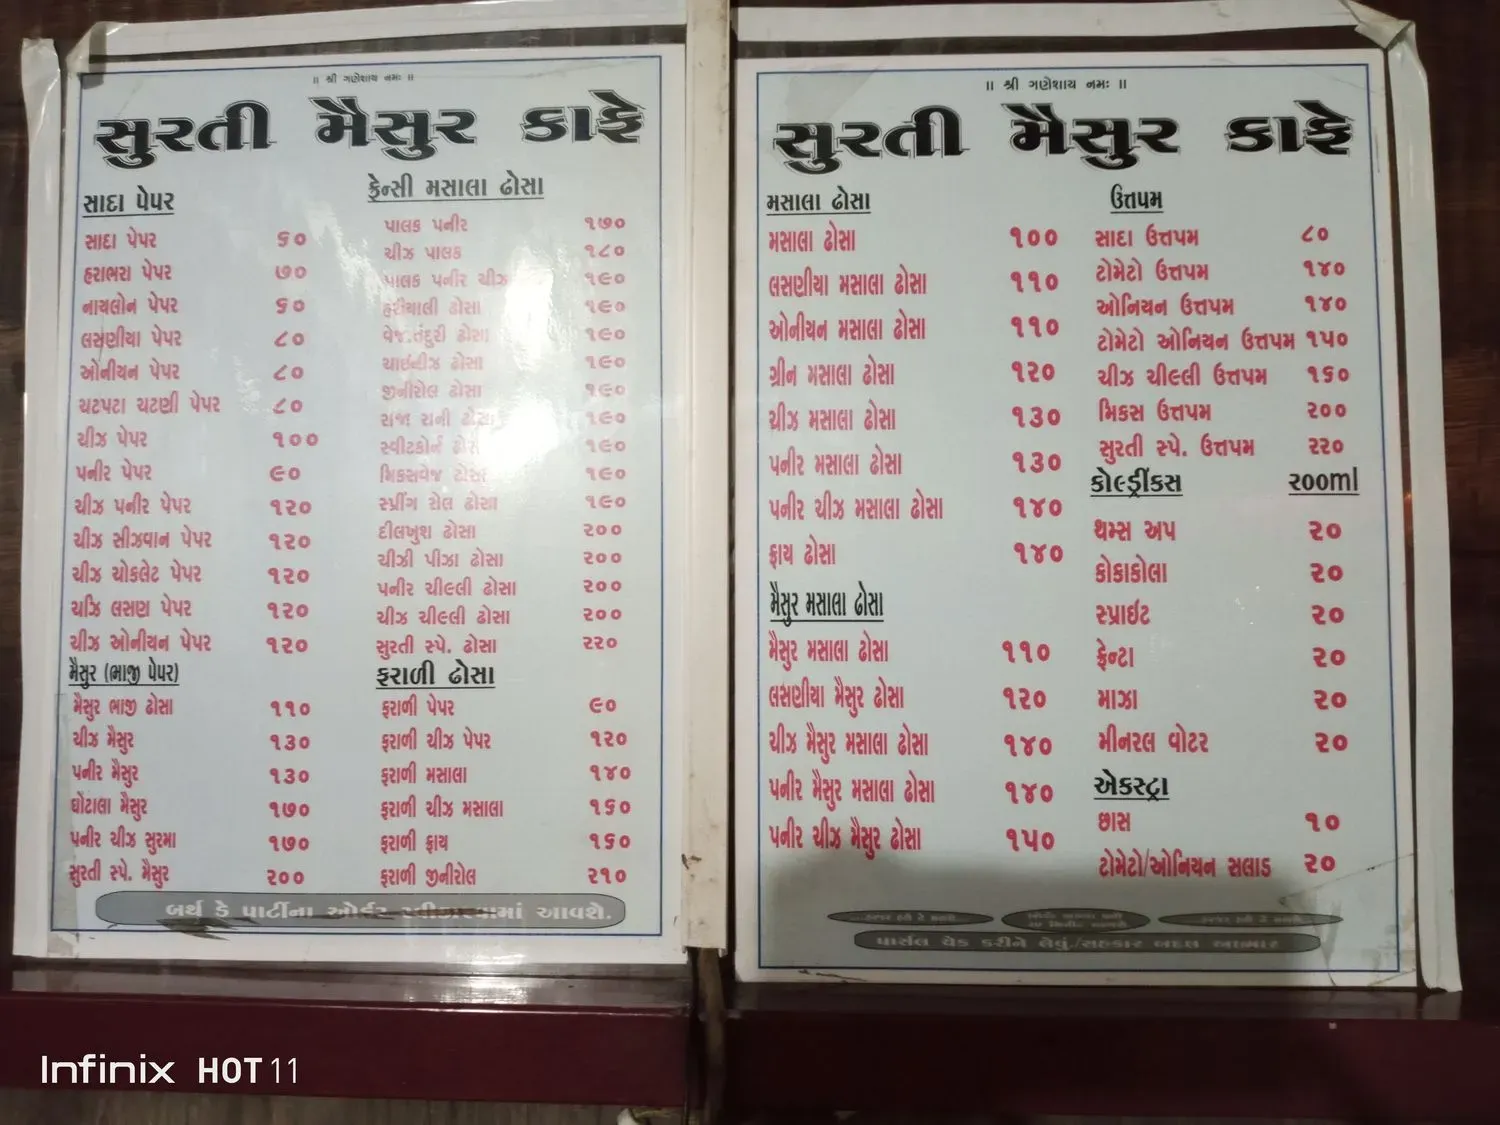 ॥ શ્રી ગણેશાય નમઃ ॥
સુરતી મૈસુર કાફે
સાદા પેપર
સાદા પેપર ૬૦
હરાભરા પેપર ૭૦
નાયલોન પેપર ૬૦
લસણીયા પેપર ૮૦
ઓનીયન પેપર ૮૦
ચટપટા ચટણી પેપર ૮૦
ચીઝ પેપર ૧૦૦
પનીર પેપર ૯૦
ચીઝ પનીર પેપર ૧૨૦
ચીઝ સીઝવાન પેપર ૧૨૦
ચીઝ ચોકલેટ પેપર ૧૨૦
ચઝિ લસણ પેપર ૧૨૦
ચીઝ ઓનીયન પેપર ૧૨૦
મૈસુર (ભાજી પેપર)
મૈસુર ભાજી ઢોસા ૧૧૦
ચીઝ મૈસુર ૧૩૦
પનીર મૈસુર ૧૩૦
ઘોટાલા મૈસુર ૧૭૦
પનીર ચીઝ સુરમા ૧૭૦
સુરતી સ્પે. મૈસુર ૨૦૦
ફેન્સી મસાલા ઢોસા
પાલક પનીર ૧૭૦
ચીઝ પાલક ૧૮૦
પાલક પનીર ચીઝ ૧૯૦
હરીયાલી ઢોસા ૧૯૦
વેજ.તંદુરી ઢોસા ૧૯૦
ચાઈનીઝ ઢોસા ૧૯૦
જીનીરોલ ઢોસા ૧૯૦
રાજા રાની ઢોસા ૧૯૦
સ્વીટકોર્ન ઢોસા ૧૯૦
મિકસવેજ ઢોસા ૧૯૦
સ્પ્રીંગ રોલ ઢોસા ૧૯૦
દીલખુશ ઢોસા ૨૦૦
ચીઝી પીઝા ઢોસા ૨૦૦
પનીર ચીલ્લી ઢોસા ૨૦૦
ચીઝ ચીલ્લી ઢોસા ૨૦૦
સુરતી સ્પે. ઢોસા ૨૨૦
ફરાળી ઢોસા
ફરાળી પેપર ૯૦
ફરાળી ચીઝ પેપર ૧૨૦
ફરાળી મસાલા ૧૪૦
ફરાળી ચીઝ મસાલા ૧૬૦
ફરાળી ફ્રાય ૧૬૦
ફરાળી જીનીરોલ ૨૧૦
બર્થ ડે પાર્ટીના ઓર્ડર સ્વીકારવામાં આવશે.
॥ શ્રી ગણેશાય નમઃ ॥
સુરતી મૈસુર કાફે
મસાલા ઢોસા
મસાલા ઢોસા ૧૦૦
લસણીયા મસાલા ઢોસા ૧૧૦
ઓનીયન મસાલા ઢોસા ૧૧૦
ગ્રીન મસાલા ઢોસા ૧૨૦
ચીઝ મસાલા ઢોસા ૧૩૦
પનીર મસાલા ઢોસા ૧૩૦
પનીર ચીઝ મસાલા ઢોસા ૧૪૦
ફ્રાય ઢોસા ૧૪૦
મૈસુર મસાલા ઢોસા
મૈસુર મસાલા ઢોસા ૧૧૦
લસણીયા મૈસુર ઢોસા ૧૨૦
ચીઝ મૈસુર મસાલા ઢોસા ૧૪૦
પનીર મૈસુર મસાલા ઢોસા ૧૪૦
પનીર ચીઝ મૈસુર ઢોસા ૧૫૦
ઉત્તપમ
સાદા ઉત્તપમ ૮૦
ટોમેટો ઉત્તપમ ૧૪૦
ઓનિયન ઉત્તપમ ૧૪૦
ટોમેટો ઓનિયન ઉત્તપમ ૧૫૦
ચીઝ ચીલ્લી ઉત્તપમ ૧૬૦
મિકસ ઉત્તપમ ૨૦૦
સુરતી સ્પે. ઉત્તપમ ૨૨૦
કોલ્ડ્રીંકસ ૨૦૦ml
થમ્સ અપ ૨૦
કોકાકોલા ૨૦
સ્પ્રાઈટ ૨૦
ફેન્ટા ૨૦
માઝા ૨૦
મીનરલ વોટર ૨૦
એકસ્ટ્રા
છાસ ૧૦
ટોમેટો/ઓનિયન સલાડ ૨૦
પાર્સલ ચેક કરીને લેવું./સહકાર બદલ આભાર
Infinix HOT 11